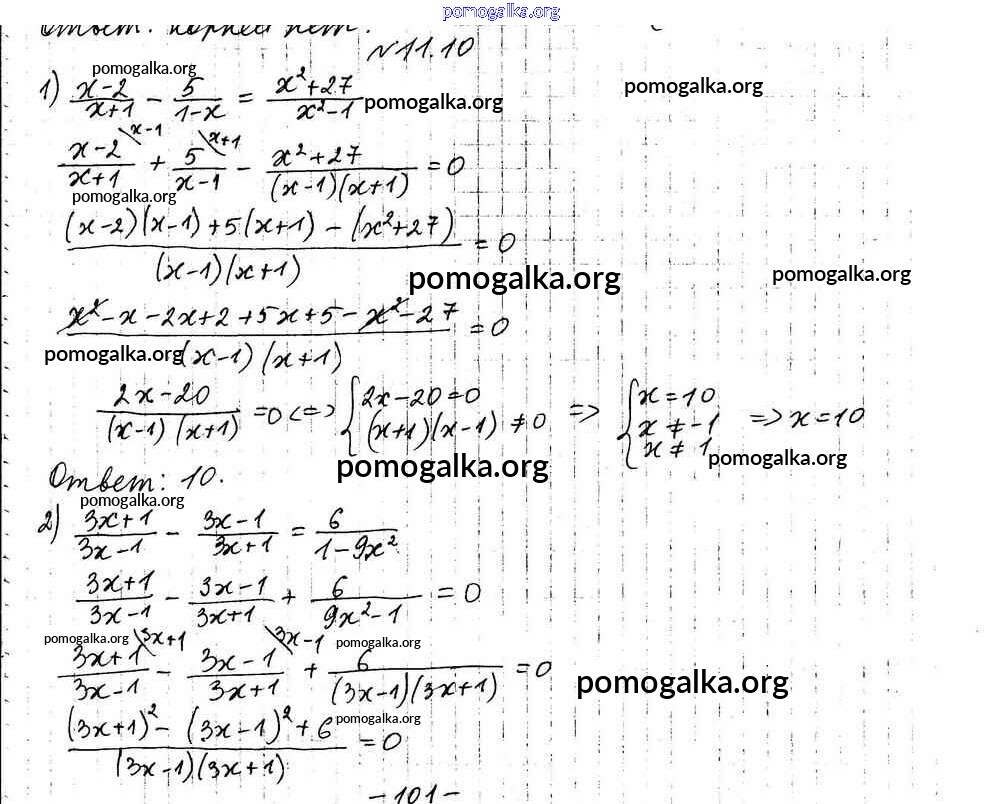 pomogalka.org
Ответ: корней нет.
№11.10
pomogalka.org
1) (x-2)/(x+1) - 5/(1-x) = (x²+27)/(x²-1)
pomogalka.org
pomogalka.org
(x-2)/(x+1) \x-1 + 5/(x-1) \x+1 - (x²+27)/((x-1)(x+1)) = 0
pomogalka.org
((x-2)(x-1)+5(x+1)-(x²+27))/((x-1)(x+1)) = 0
pomogalka.org
pomogalka.org
(x²-x-2x+2+5x+5-x²-27)/((x-1)(x+1)) = 0
pomogalka.org
(2x-20)/((x-1)(x+1)) = 0 <=> { 2x-20=0 (x+1)(x-1) ≠ 0 => { x=10 x ≠ -1 x ≠ 1 => x=10
pomogalka.org
pomogalka.org
Ответ: 10.
pomogalka.org
2) (3x+1)/(3x-1) - (3x-1)/(3x+1) = 6/(1-9x²)
(3x+1)/(3x-1) - (3x-1)/(3x+1) + 6/(9x²-1) = 0
pomogalka.org
pomogalka.org
(3x+1)/(3x-1) \3x+1 - (3x-1)/(3x+1) \3x-1 + 6/((3x-1)(3x+1)) = 0
pomogalka.org
pomogalka.org
((3x+1)²-(3x-1)²+6)/((3x-1)(3x+1)) = 0
-101-